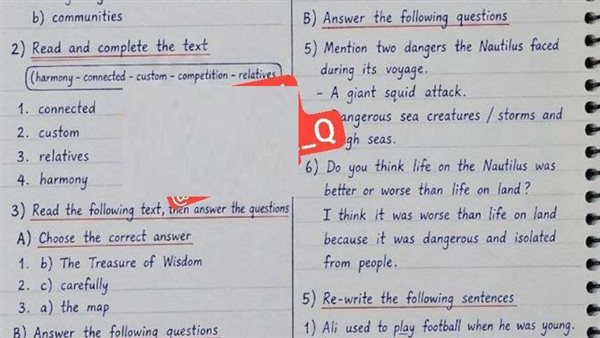 b) communities
2) Read and complete the text
(harmony - connected - custom - competition - relatives
1. connected
2. custom
3. relatives
4. harmony
3) Read the following text, then answer the questions
A) Choose the correct answer
1. b) The Treasure of Wisdom
2. c) carefully
3. a) the map
B) Answer the following questions
B) Answer the following questions
5) Mention two dangers the Nautilus faced
during its voyage.
- A giant squid attack.
sea creatures / storms and
seas.
6) Do you think life on the Nautilus was
better or worse than life on land?
I think it was worse than life on land
because it was dangerous and isolated
from people.
5) Re-write the following sentences
1) Ali used to play football when he was young.
_Q